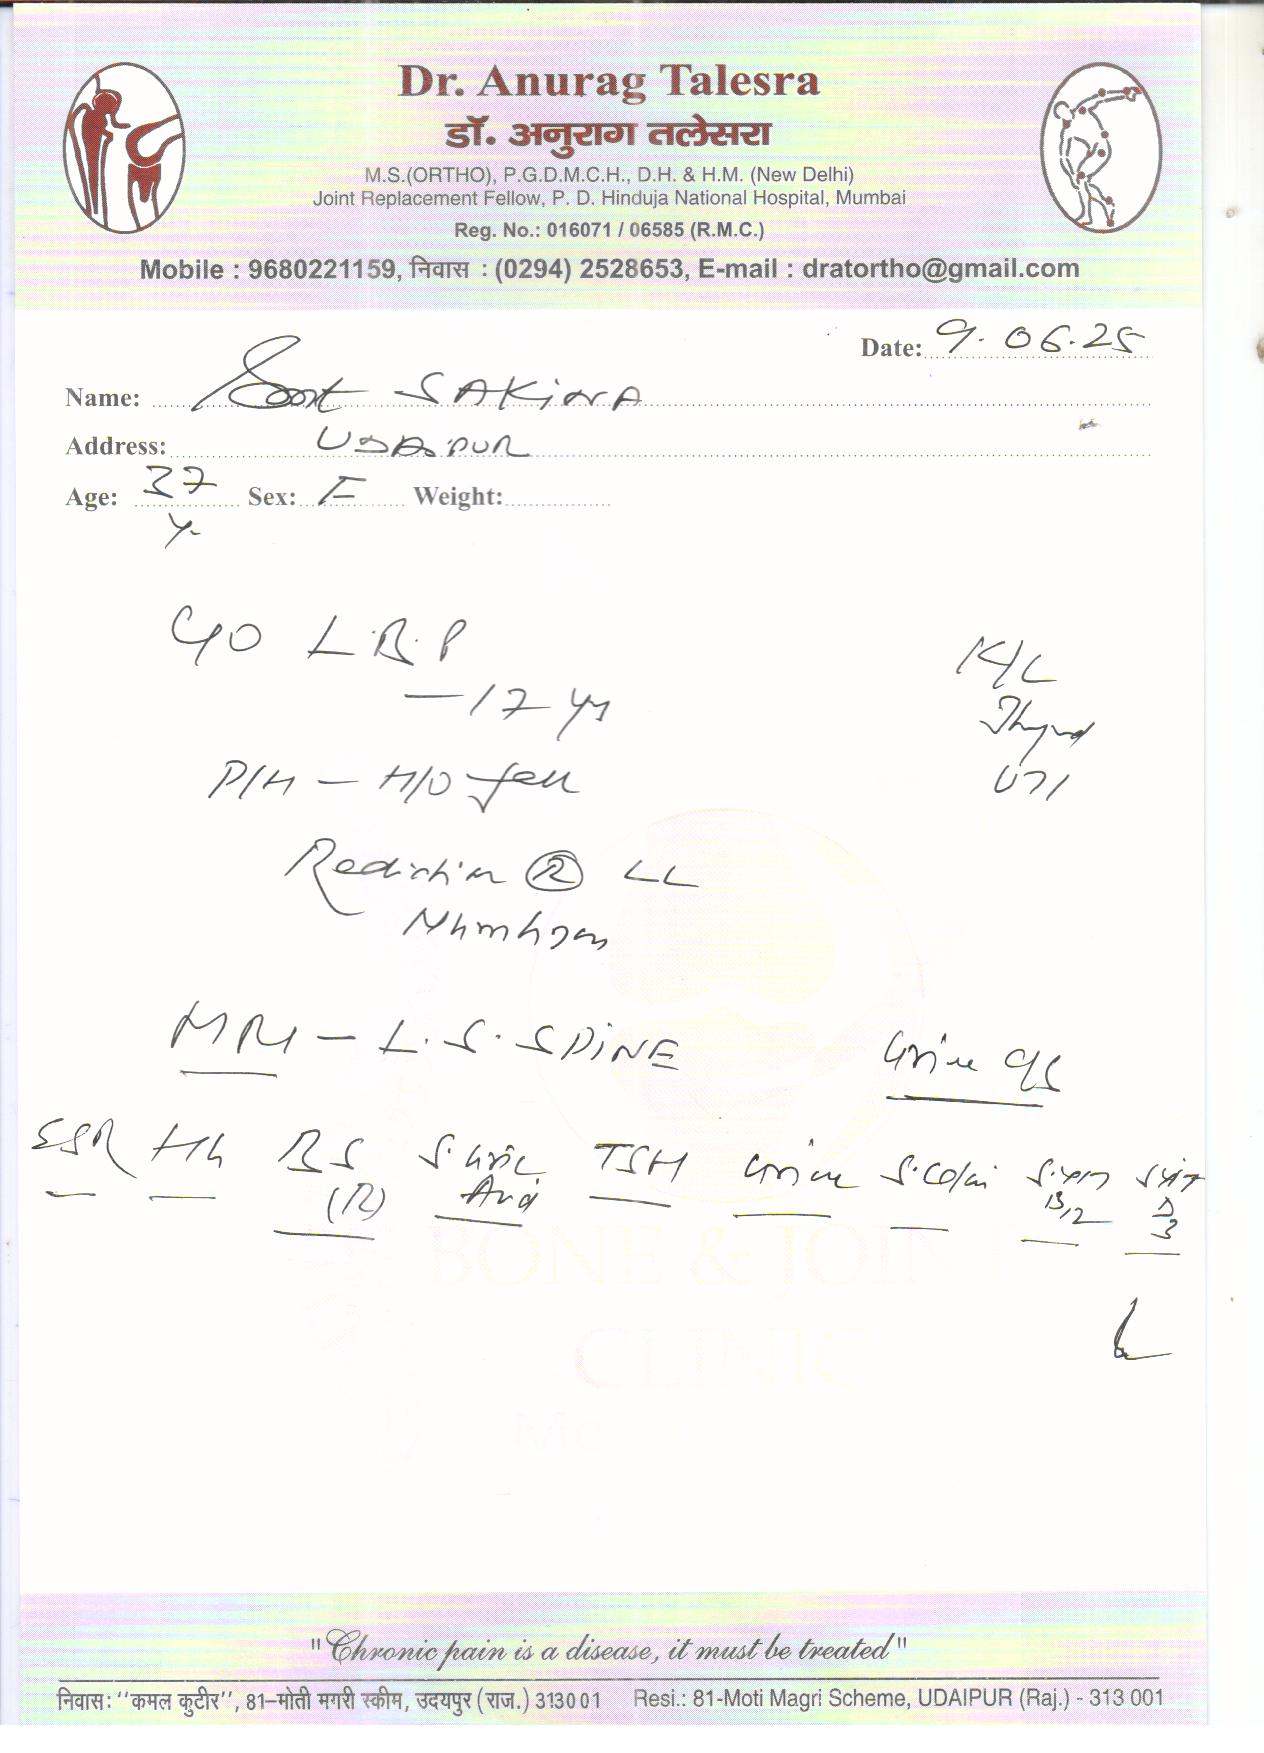 Dr. Anurag Talesra
डॉ. अनुराग तलेसरा
M.S.(ORTHO), P.G.D.M.C.H., D.H. & H.M. (New Delhi)
Joint Replacement Fellow, P. D. Hinduja National Hospital, Mumbai
Reg. No.: 016071 / 06585 (R.M.C.)
Mobile : 9680221159, निवास : (0294) 2528653, E-mail : dratortho@gmail.com
Date: 9.06.25
Name: SAKINA
Address: UDAIPUR
Age: 37 Sex: F Weight:
y
C/O L.B.P
— 17 yrs
K/C
Thyroid
UTI
P/H — H/O fall
Radiation (R) LL
MRI — L.S. SPINE
Urine C/S
ESR Hb BS S. Uric TSH Urine S. Calci B12 D3
(R) Acid
BONE & JOINT
CLINIC
"Chronic pain is a disease, it must be treated"
निवास: "कमल कुटीर", 81–मोती मगरी स्कीम, उदयपुर (राज.) 313001 Resi.: 81-Moti Magri Scheme, UDAIPUR (Raj.) - 313 001